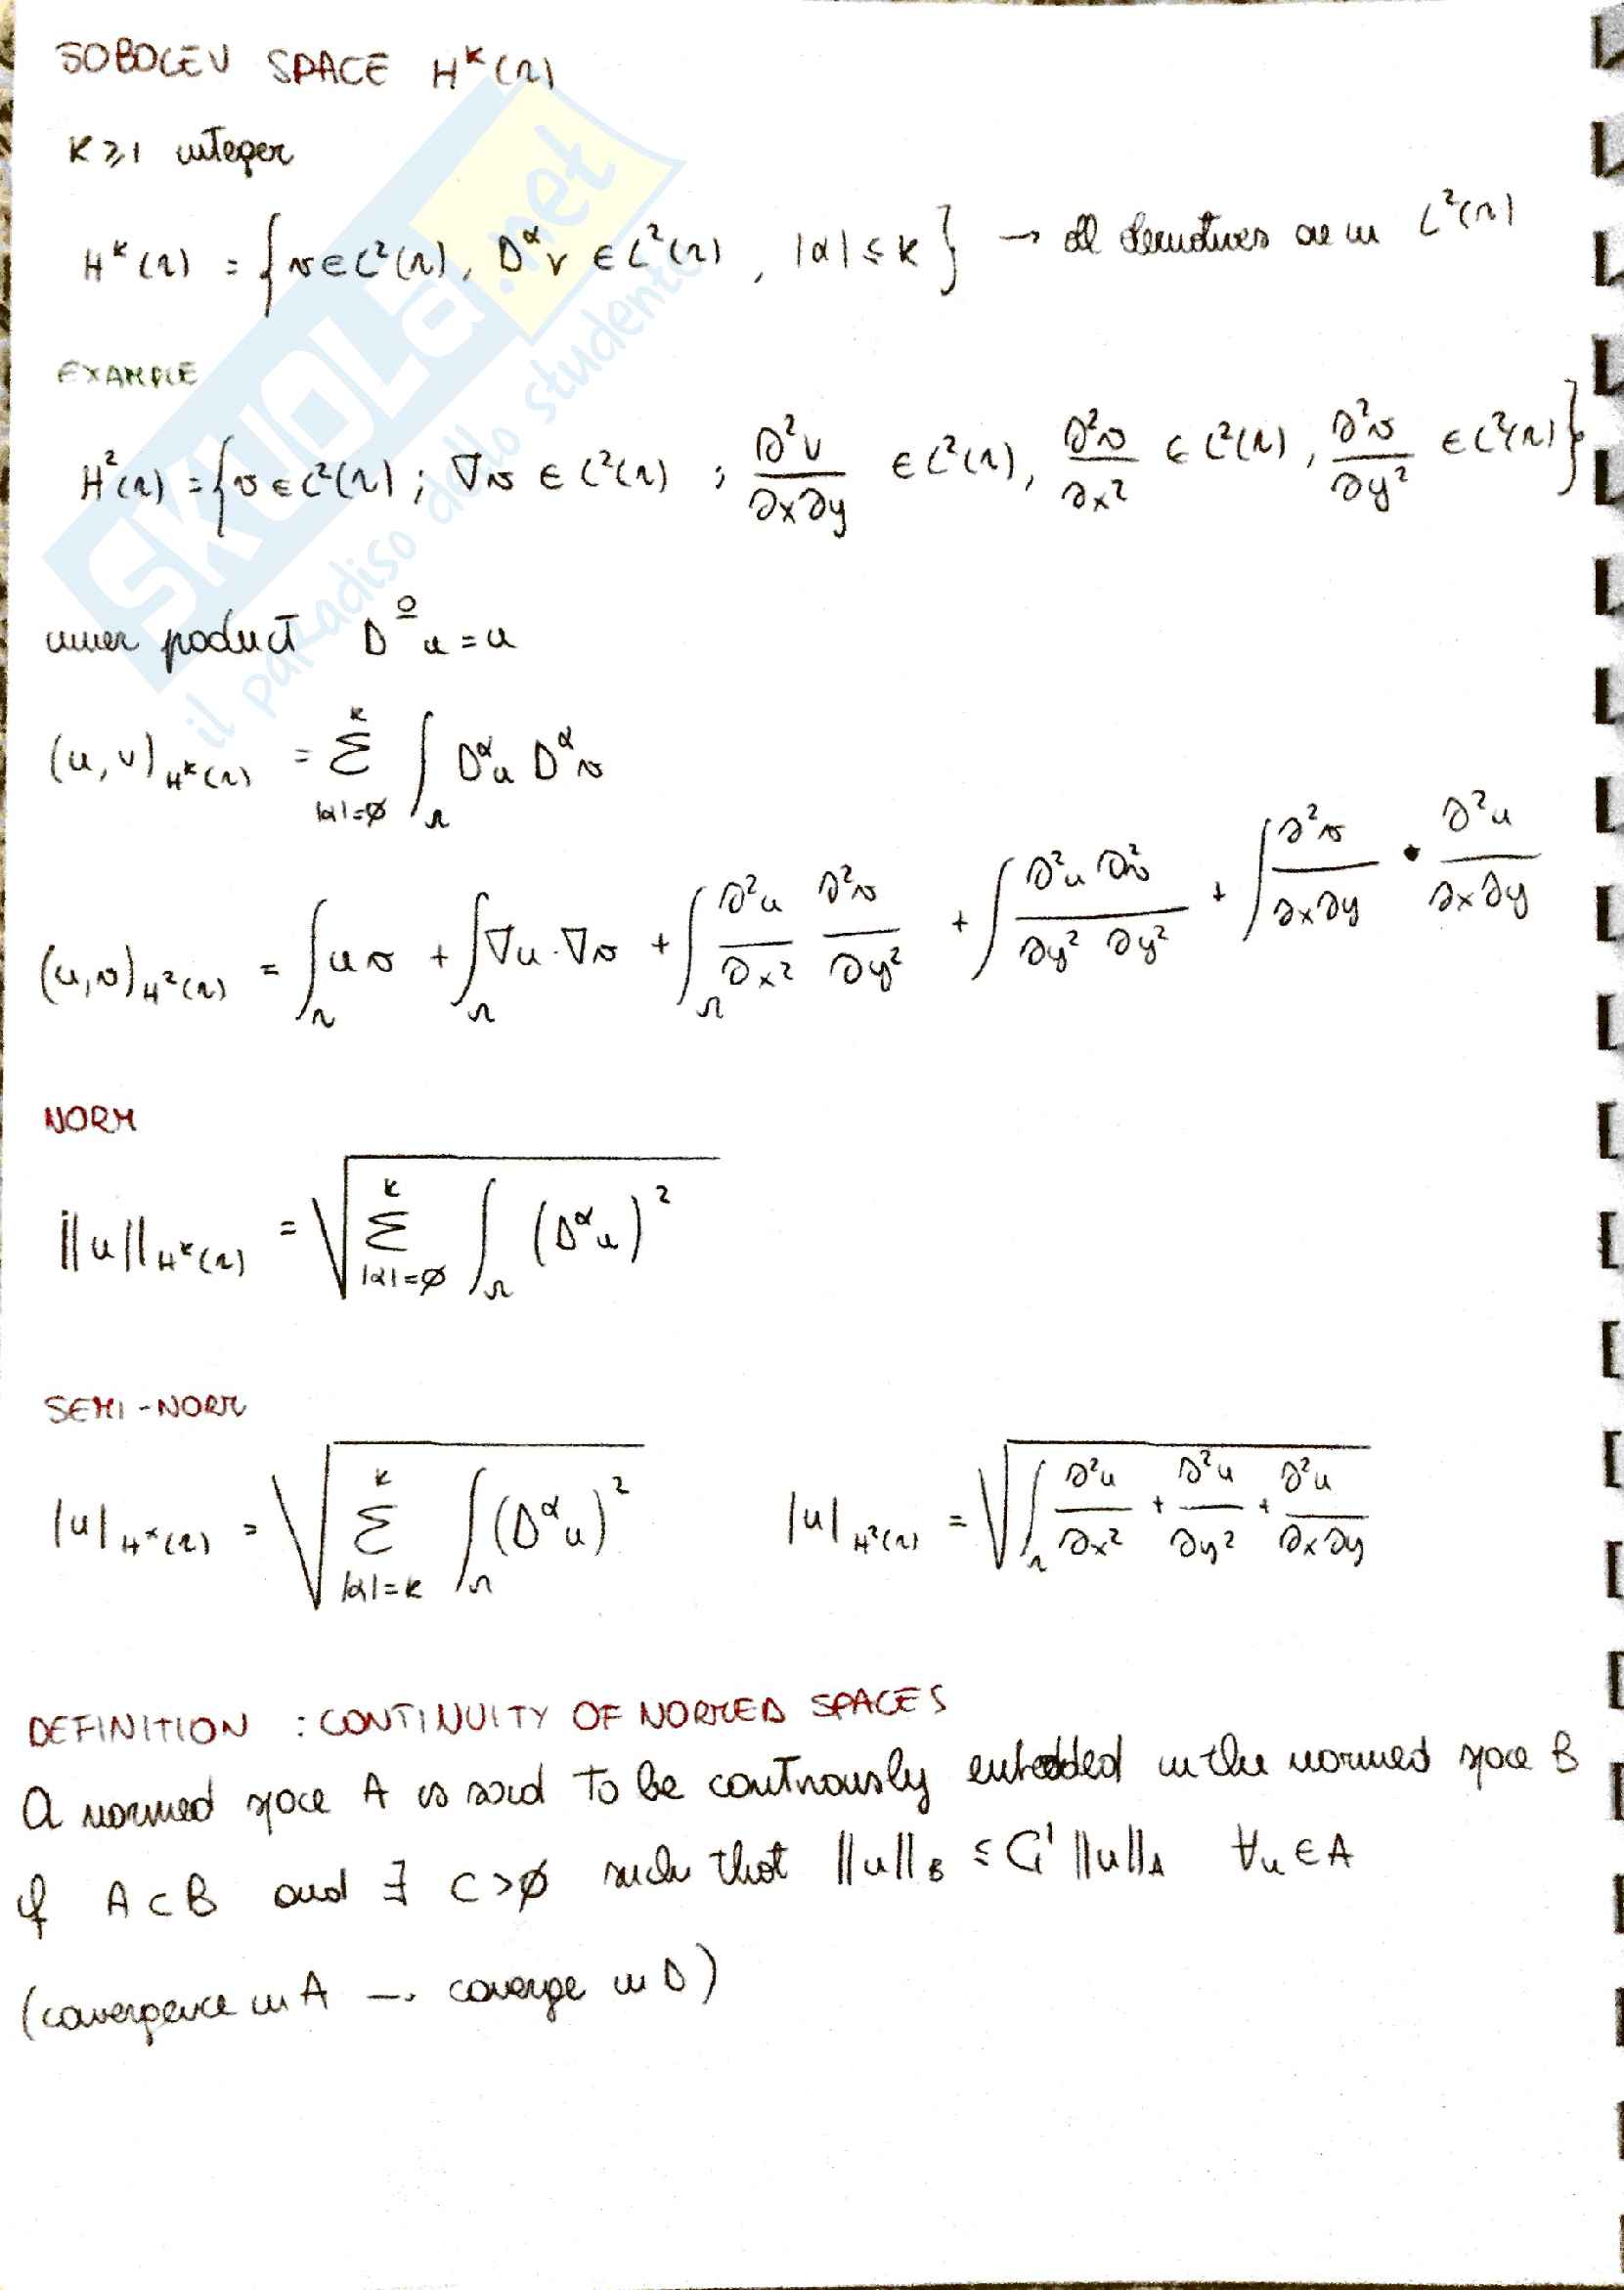 SOBOLEV SPACE H^k(Ω)
K ≥ 1 integer
H^k(Ω) = { v ∈ L²(Ω), D^α v ∈ L²(Ω), |α| ≤ k } → all derivatives are in L²(Ω)
EXAMPLE
H²(Ω) = { v ∈ L²(Ω) ; ∇v ∈ L²(Ω) ; ∂²v/∂x∂y ∈ L²(Ω), ∂²v/∂x² ∈ L²(Ω), ∂²v/∂y² ∈ L²(Ω) }
inner product D^0 u = u
(u, v)_{H^k(Ω)} = Σ_{|α|=0}^{k} ∫_Ω D^α u D^α v
(u, v)_{H²(Ω)} = ∫_Ω u v + ∫_Ω ∇u · ∇v + ∫_Ω ∂²u/∂x² ∂²v/∂y² + ∫ ∂²u ∂²v / ∂y² ∂y² + ∫ ∂²v/∂x∂y · ∂²u/∂x∂y
NORM
||u||_{H^k(Ω)} = √( Σ_{|α|=0}^{k} ∫_Ω (D^α u)² )
SEMI-NORM
|u|_{H^k(Ω)} = √( Σ_{|α|=k}^{k} ∫_Ω (D^α u)² ) |u|_{H²(Ω)} = √( ∫_Ω ∂²u/∂x² + ∂²u/∂y² + ∂²u/∂x∂y )
DEFINITION : CONTINUITY OF NORMED SPACES
A normed space A is said to be continously embedded in the normed space B
if A ⊂ B and ∃ C > 0 such that ||u||_B ≤ C ||u||_A ∀u ∈ A
(convergence in A → converge in B)
SKUOLA.net
il paradiso dello studente